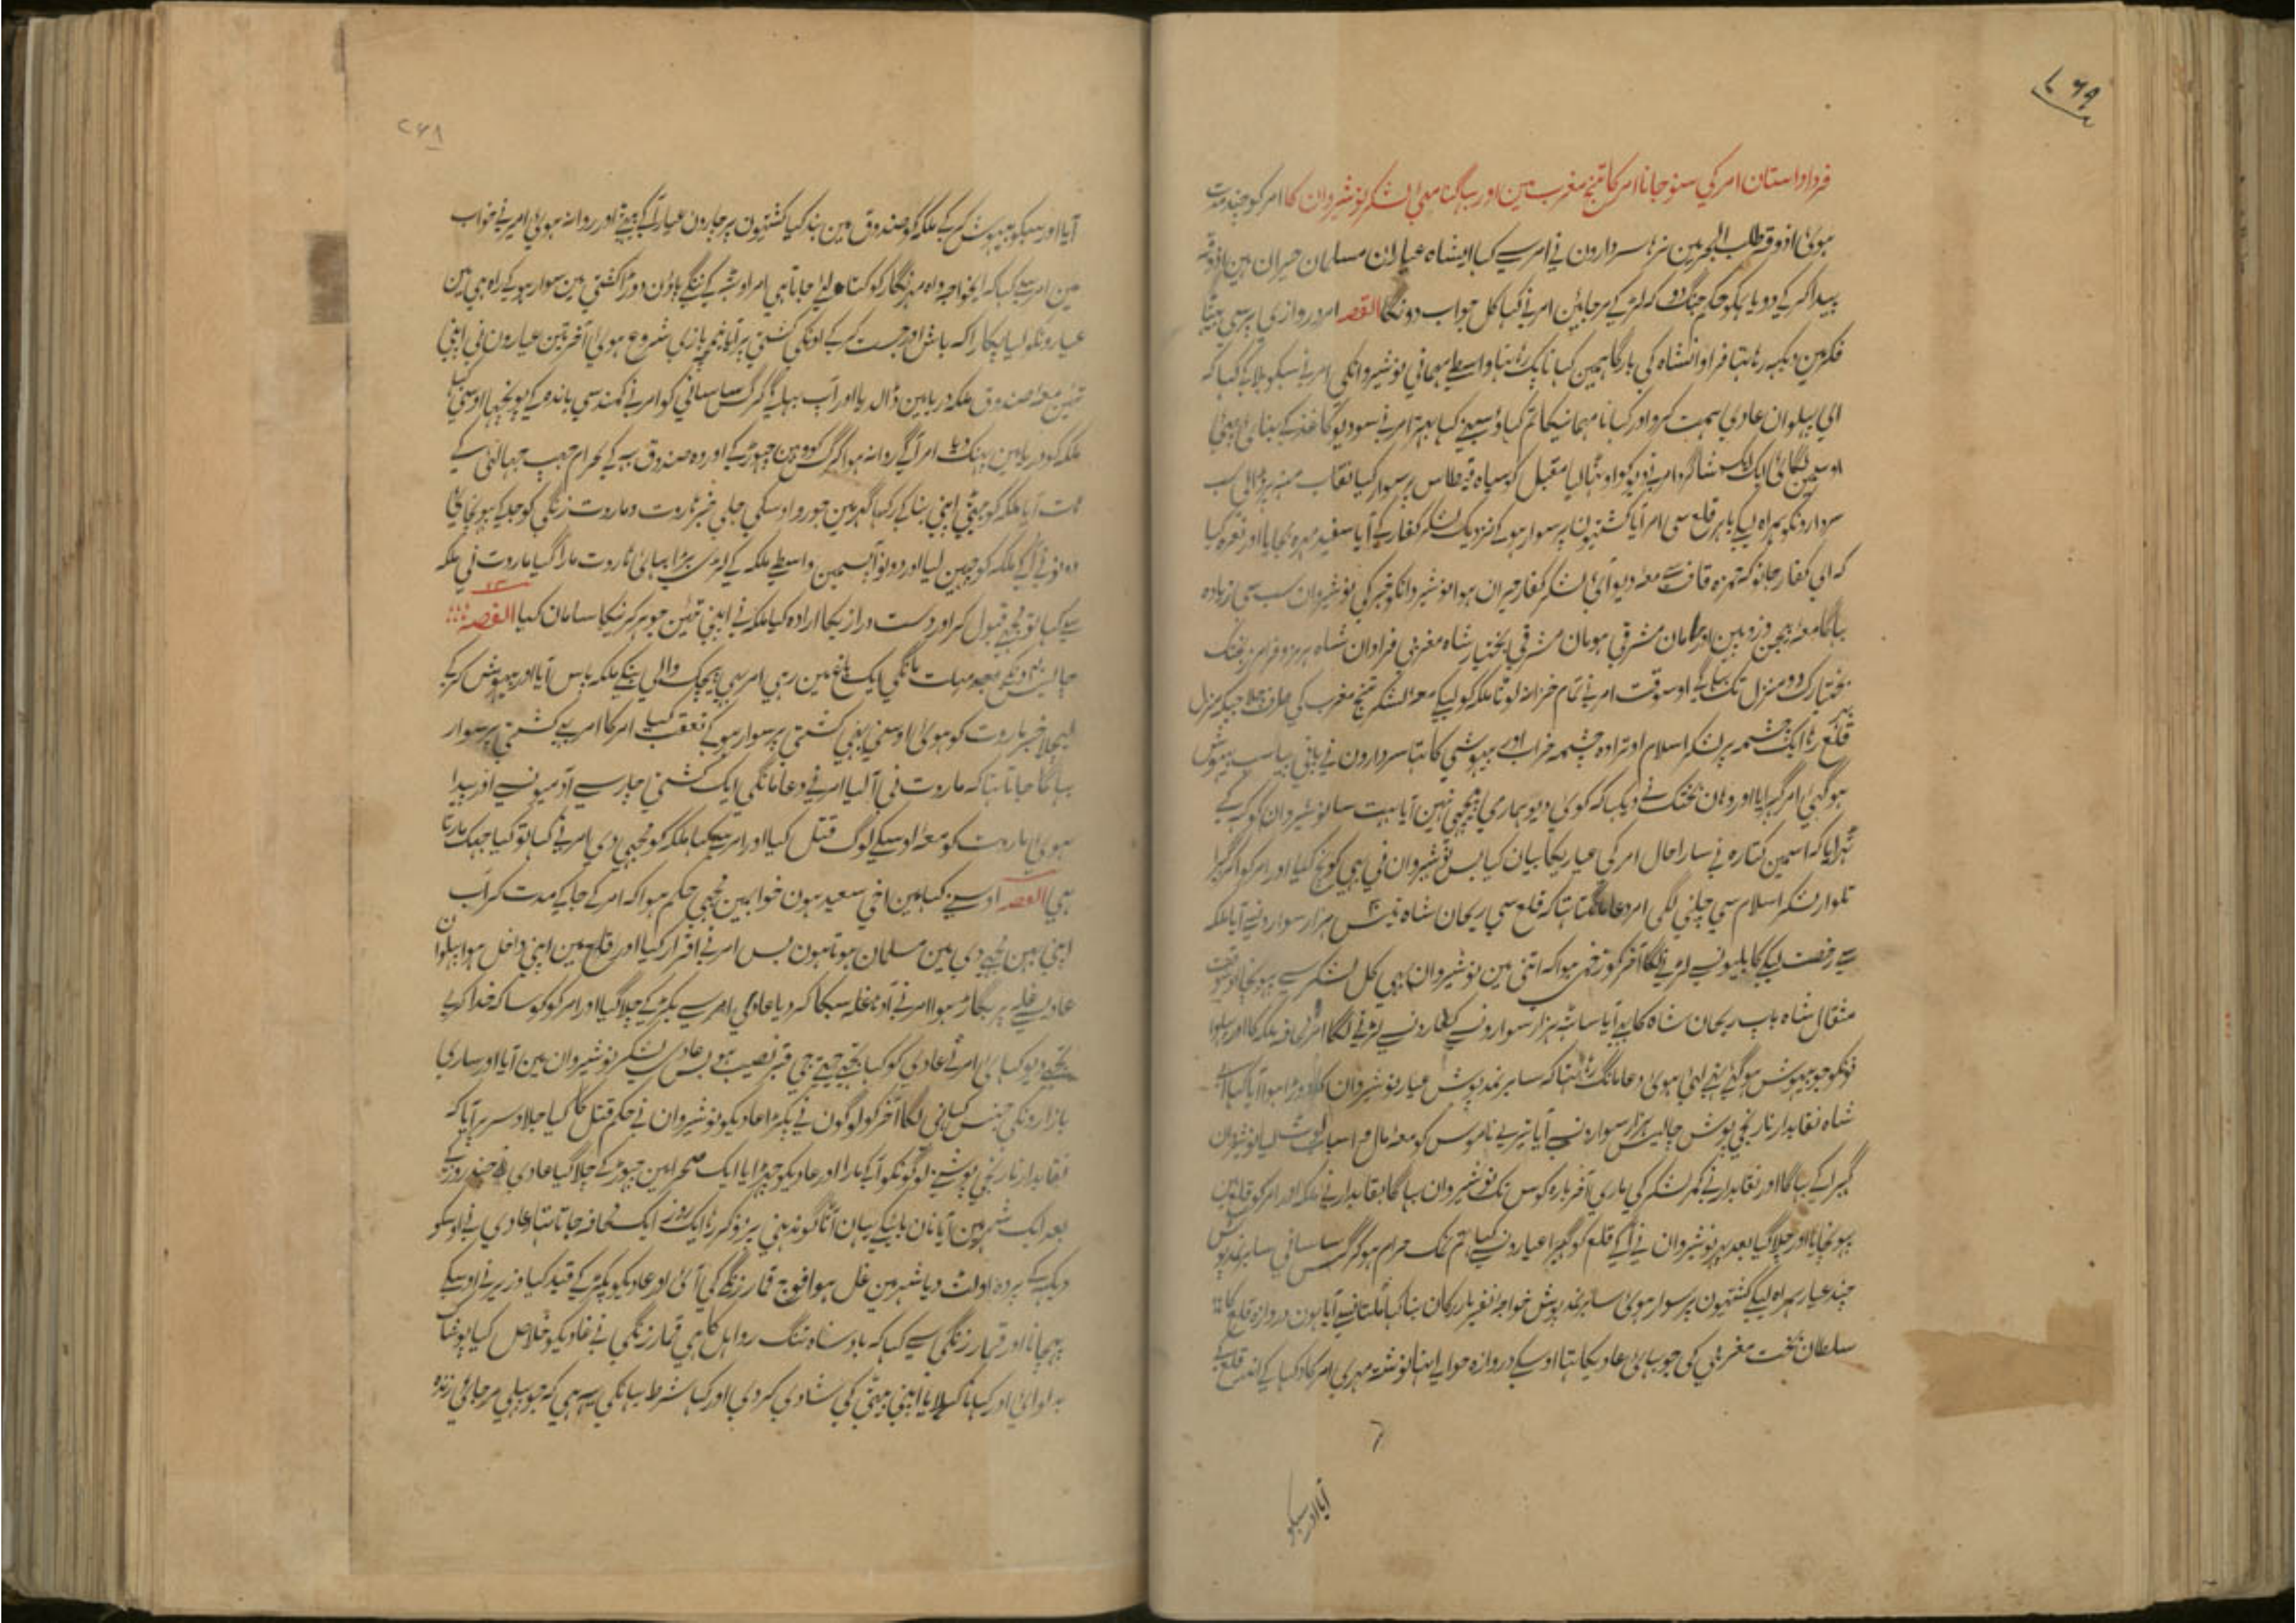 ۲۶۹
فرد داستان امر کی سنو جانا امر کا تنج مغرب مین اور بہاگنا معہ لشکر نوشیروان کا امر کو چند مدت
ہوئی اذوقہ طلب البحرین نرہا سردارون نی امر سے کہا ای شاہ عیاران مسلمان حیران ہین اذوقہ
پیدا کر کے دو یا ہمکو حکم جنگ دو کہ لڑ کے مر جائین امر نے کہا کل جواب دونگا القصہ امر دروازی پر سی بیٹہا
فکر مین دیکہہ رہا تہا فراوانشاہ کی بارگاہ مین کہانا پک رہا تہا واسطے مہمانی نوشیروانکی امر نے سبکو بلا کے کہا کہ
ای پہلوان عادی ہمت کرو اور کہانا مہمانیکا تم کہاؤ سبہنے کہا بہتر امر نے سو دیو کاغذ کے بنائی
اوسمین لگائی ایک ایک شاگرد امر نے دیو کو اوٹہا لیا مقبل کو سیاہ قیطاس پر سوار کیا نقاب منہہ پر ڈالی سب
سردارونکو ہمراہ لیکے باہر قلع سی امر آیا کشتیون پر سوار ہو کے نزدیک لشکر کفار کے آیا سفید مہرہ بجایا اور نعرہ کیا
کہ ای کفار جانو کہ حمزہ قاف سے معہ دیو آیا لشکر کفار حیران ہوا نوشیروانکو خبر کی نوشیروان سب سی زیادہ
بہاگا معہ بیجن و ژوپین اور ہامان مشرقی ہومان مشرقی بختیار شاہ مغربی فراوان شاہ ہرمز و فرامرز بختک
بختیارک دو منزل تک بہاگے اوسوقت امر نے تمام خزانہ لوٹا ملکہ کو لیکے معہ لشکر تنج مغرب کی طرف چلا جبکہ منزل
قلع رہا ایک چشمہ پر لشکر اسلام اوترا وہ چشمہ خراب اور بیہوشی کا تہا سردارون نے پانی پیا سب بیہوش
ہوگئی امر گہبرایا اور وہان بختک نے دیکہا کہ کوی دیو ہماری پیچہی نہین آیا بہت سا نوشیروان کو کر کے
ٹہرایا کہ اسمین کتارہ نے سارا حال امر کی عیاریکا بیان کیا بس نوشیروان نی بہی کوچ کیا اور امر کو آگہیرا
تلوار لشکر اسلام سی چلنی لگی امر دعا مانگتا تہا کہ قلع سی ریحان شاہ تیس ہزار سوارونسے آیا ملکہ
سے رخصت لیکے کابلیونسے لڑنے لگا آخر کو زخمی ہوا کہ اتنی مین نوشیروان بہی کل لشکر سے پہونچا اوسوقت
مثقال شاہ باپ ریحان شاہ کا بہی آیا ساٹہہ ہزار سوارونسے کفارونسے لڑنے لگا امر محافہ ملکہ کا اور پہلوا
نونکو جو بیہوش ہوگئے تہے لئی ہوی دعا مانگ رہا تہا کہ سابر نمد پوش عیار نوشیروان کا دوڑا ہوا آیا کہا ای
شاہ نقابدار نارنجی پوش چالیس ہزار سوارونسے آیا تیرے ناموس کو معہ مال و اسباب لوٹ لیا نوشیروان
گہبرا کے بہاگا اور نقابدار نے کمر لشکر کی ماری آخر بارہ کوس تک نوشیروان بہاگا نقابدار نے ملکہ اور امر کو قلع مین
پہونچایا اور چلا گیا بعد پہر نوشیروان نے آکے قلع کو گہیرا عیارونسے کہا تم نمک حرام ہو گرگس ساسانی سابر نمد پوش
چند عیار ہمراہ لیکے کشتیون پر سوار ہوئی سابر نمد پوش خواجہ نفیر بازرگان بنا کہا ملتانسے آیا ہون دروازہ قلع کا
سلطان بخت مغربی کی جو بہائی عادیکا تہا اوسکے دروازہ حوالے تہا نوشتہ مہری امر کا دکہا کے اندر قلع کے
آیا اور سبکو
۲۶۸
آیا اور سبکو بیہوش کر کے ملکہ کو صندوق مین بند کیا کشتیون پر چارون عیار آکے بیٹہے اور روانہ ہوئی امر نے خواب
مین امر سے کہا کہ ای خواجہ واہ مہر نگار کو کتا لئے جاتا ہی امر اوٹہہ کے ننگے پاؤن دوڑا کشتی مین سوار ہو کے راہ ہی مین
عیارونکو لیا پکارا کہ باش اور جست کر کے اونکی کشتی پر آیا خنجر بازی شروع ہوئی آخر تین عیارون نی اپنی
تئین معہ صندوق ملکہ دریا مین ڈال دیا اور آپ بہاگے گرگس ساسانی کو امر نے کمند سی باندہ کے پونچہا اوسنی کہا
ملکہ کو دریا مین پہینک دیا امر آگے روانہ ہوا گرگس کو وہین چہوڑ کے اور وہ صندوق بہہ کے بحرام جیب جہالتی کے
ہات آیا ملکہ کو بیٹی اپنی بنا کر رکہا گہر مین جورو اوسکی جلی خبر ہاروت و ماروت زنگی کو جلکے پہونچائی
دونونے آکے ملکہ کو چہین لیا اور دونو آپسمین واسطے ملکہ کے لڑی بڑا بہائی ہاروت مارا گیا ماروت نی ملکہ
سے کہا تو مجہے قبول کر اور دست درازیکا ارادہ کیا ملکہ نے اپنی تئین جوہر کرنیکا سامان کیا القصہ
چالیس دنکی مہلت مانگی ایک باغ مین رہی امر بہی پیچک والی بنکے ملکہ پاس آیا اور بیہوش کر کے
لیچلا خبر ماروت کو ہوئی اوسنی بہی کشتی پر سوار ہو کے تعقب کیا امر کا امر بہی کشتی پر سوار
بہاگا جاتا تہا کہ ماروت نی آلیا امر نے دعا مانگی ایک کشتی چار سے آدمیونسے اور پیدا
ہوی ماروت کو معہ اوسکے لوگ قتل کیا اور امر سے کہا ملکہ کو مجہی دی امر نے کہا تو کیا جہک مارتا
ہی القصہ اوسنے کہا مین اخی سعید ہون خوابمین مجہی حکم ہوا کہ امر کے جاکے مدت کر اب
اپنی بہن مجہے دی مین مسلمان ہوتا ہون بس امر نے اقرار کیا اور قلع مین اپنی داخل ہوا پہلوان
عادیسے غلے پر بگاڑ ہوا امر نے آدہا غلہ سبکا کر دیا عادی امر سے بگڑ کے چلا گیا اور امر کو کوسا کہ خدا کرے
تجہے دیو کہائی امر نے عادی کو کہا تجہے جیتے جی قبر نصیب ہو بس عادی لشکر نوشیروان مین آیا اور ساری
بازارونکی جنس کہانی لگا آخر کو لوگون نے پکڑا عادیکو نوشیروان نے حکم قتل کا کیا جلاد سر پر آیا کہ
نقابدار نارنجی پوشنے لوگونکو آکے مارا اور عادیکو چہوڑایا ایک صحرا مین چہوڑ کے چلا گیا عادی چند روز کے
بعد ایک شہر مین آیا نان بائیکے یہان آٹا گوندہنی پر نوکر رہا ایک روز ایک محافہ جاتا تہا عادی نے اوسکو
دیکہہ کے پردہ اولٹ دیا شہر مین غل ہوا فوج قمار زنگی کی آئی اور عادیکو پکڑ کے قید کیا وزیر نے اوسکے
پہچانا اور قمار زنگی سے کہا کہ بادشاہ تنگ رواہل کا ہی قمار زنگی نے عادیکو خلاص کیا پوشاک
بدلوائی اور کہانا کہلایا اپنی بیٹی کی شادی کر دی اور کہا شرط یہانکی یہہ ہی کہ جو پہلی مر جائی زندہ